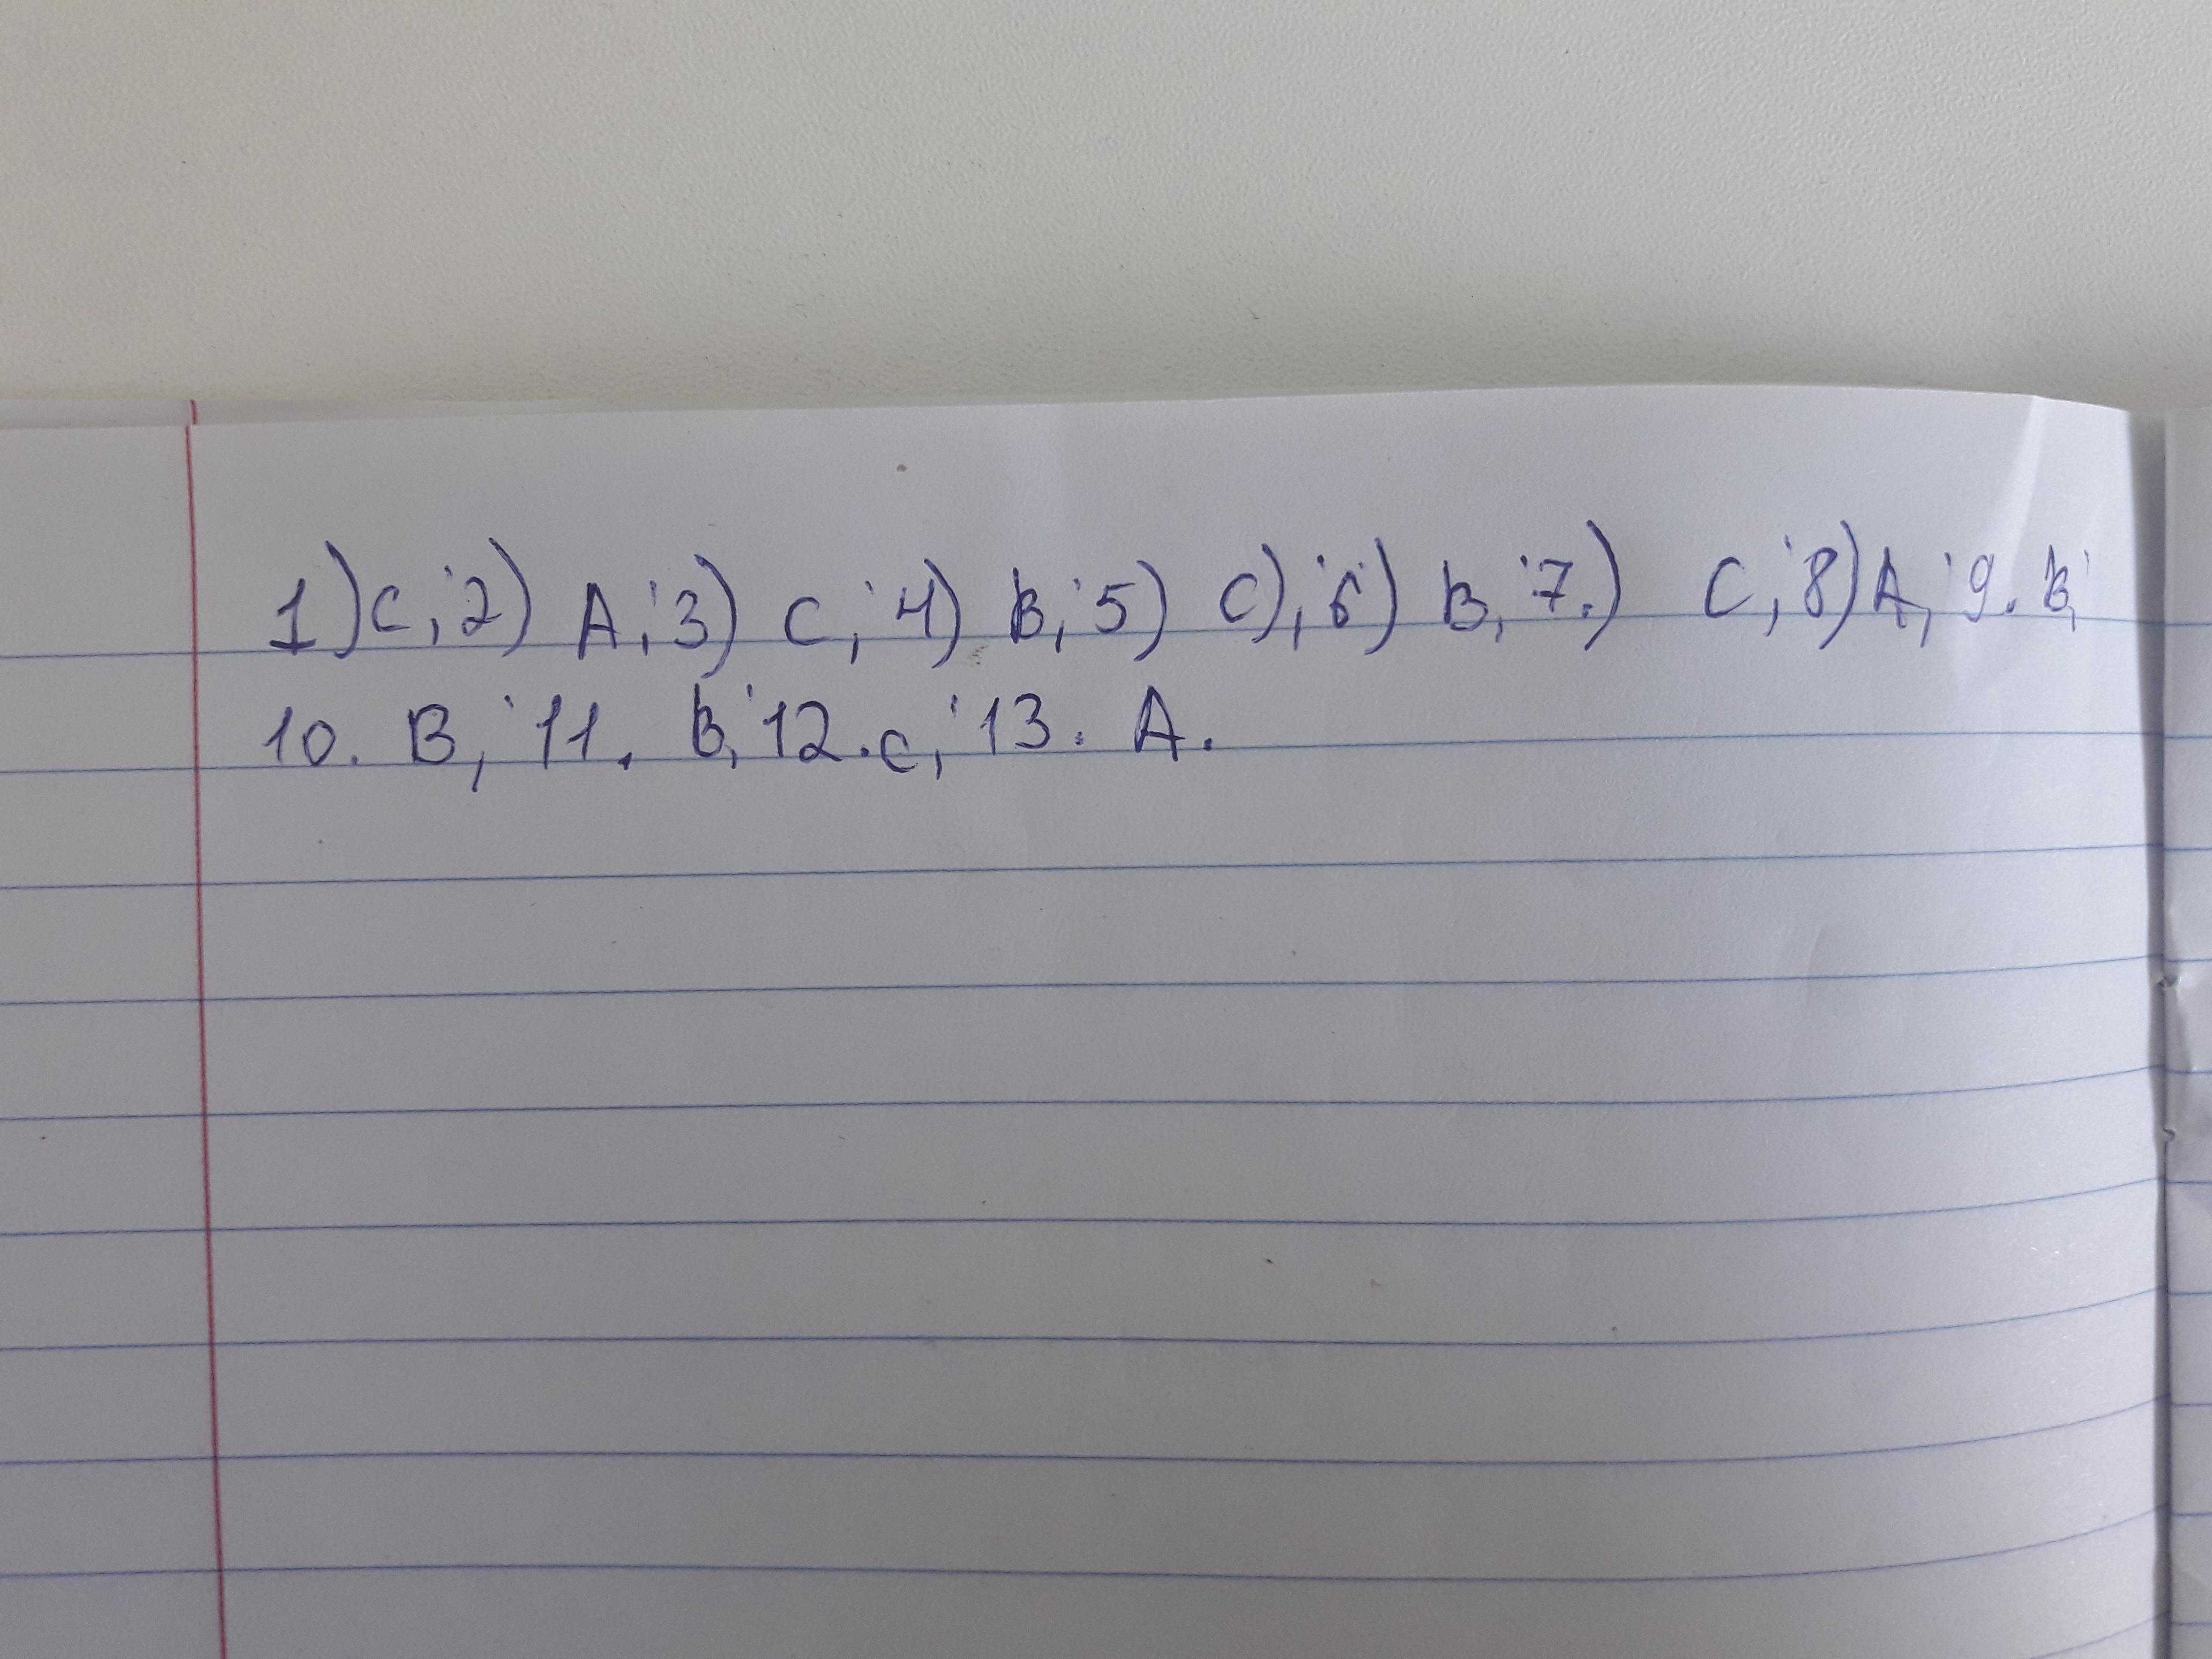 1) C; 2) A; 3) C; 4) B; 5) C); 6) B; 7.) C; 8) A; 9. B;
10. B; 11. B; 12. c; 13. A.